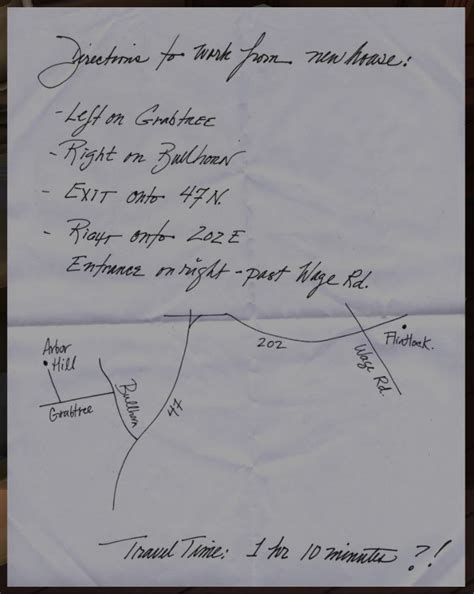 Directions to work from new house:
- Left on Grabtree
- Right on Bullhorn
- Exit onto 47 N.
- Right onto 202 E
Entrance on right - past Wage Rd.
Arbor
Hill
Grabtree
Bullhorn
47
202
Wage Rd.
Flintlock.
Travel Time: 1 hr 10 minutes ?!